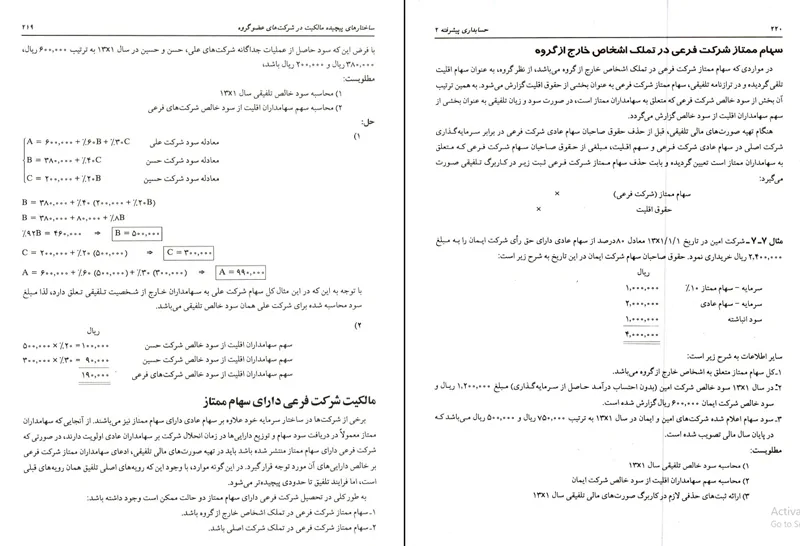 ۲۲۰ حسابداری پیشرفته ۲
سهام ممتاز شرکت فرعی در تملک اشخاص خارج از گروه
در مواردی که سهام ممتاز شرکت فرعی در تملک اشخاص خارج از گروه می‌باشد، از نظر گروه، به عنوان سهام اقلیت
تلقی گردیده و در ترازنامه تلفیقی، سهام ممتاز شرکت فرعی به عنوان بخشی از حقوق اقلیت گزارش می‌شود. به همین ترتیب
آن بخش از سود خالص شرکت فرعی که متعلق به سهامداران ممتاز است، در صورت سود و زیان تلفیقی به عنوان بخشی از
سهم سهامداران اقلیت از سود خالص گزارش می‌گردد.
هنگام تهیه صورت‌های مالی تلفیقی، قبل از حذف حقوق صاحبان سهام عادی شرکت فرعی در برابر سرمایه‌گذاری
شرکت اصلی در سهام عادی شرکت فرعی و سهم اقلیت، مبلغی از حقوق صاحبان سهام شرکت فرعی که متعلق
به سهامداران ممتاز است تعیین گردیده و بابت حذف سهام ممتاز شرکت فرعی ثبت زیر در کاربرگ تلفیقی صورت
می‌گیرد:
سهام ممتاز (شرکت فرعی) ×
حقوق اقلیت ×
مثال ۷-۷- شرکت امین در تاریخ ۱۳×۱/۱/۱ معادل ۸۰درصد از سهام عادی دارای حق رأی شرکت ایمان را به مبلغ
۲,۴۰۰,۰۰۰ ریال خریداری نمود. حقوق صاحبان سهام شرکت ایمان در این تاریخ به شرح زیر است:
ریال
سرمایه - سهام ممتاز ۱۰٪ ۱,۰۰۰,۰۰۰
سرمایه - سهام عادی ۲,۰۰۰,۰۰۰
سود انباشته ۱,۰۰۰,۰۰۰
۴,۰۰۰,۰۰۰
سایر اطلاعات به شرح زیر است:
۱ـ کل سهام ممتاز متعلق به اشخاص خارج از گروه می‌باشد.
۲ـ در سال ۱۳×۱ سود خالص شرکت امین (بدون احتساب درآمد حاصل از سرمایه‌گذاری) مبلغ ۱,۲۰۰,۰۰۰ ریال و
سود خالص شرکت ایمان ۶۰۰,۰۰۰ ریال گزارش شده است.
۳ـ سود سهام اعلام شده شرکت‌های امین و ایمان در سال ۱۳×۱ به ترتیب ۷۵۰,۰۰۰ ریال و ۵۰۰,۰۰۰ ریال می‌باشد که
در پایان سال مالی تصویب شده است.
مطلوبست:
۱) محاسبه سود خالص تلفیقی سال ۱۳×۱
۲) محاسبه سهم سهامداران اقلیت از سود خالص شرکت ایمان
۳) ارائه ثبت‌های حذفی لازم در کاربرگ صورت‌های مالی تلفیقی سال ۱۳×۱
ساختارهای پیچیده مالکیت در شرکت‌های عضو گروه ۲۱۹
با فرض این که سود حاصل از عملیات جداگانه شرکت‌های علی، حسن و حسین در سال ۱۳×۱ به ترتیب ۶۰۰,۰۰۰ ریال،
۳۸۰,۰۰۰ ریال و ۲۰۰,۰۰۰ ریال باشد،
مطلوبست:
۱) محاسبه سود خالص تلفیقی سال ۱۳×۱
۲) محاسبه سهم سهامداران اقلیت از سود خالص شرکت‌های فرعی
حل:
۱)
معادله سود شرکت علی A = ۶۰۰,۰۰۰ + ٪۶۰B + ٪۳۰C
معادله سود شرکت حسن B = ۳۸۰,۰۰۰ + ٪۴۰C
معادله سود شرکت حسین C = ۲۰۰,۰۰۰ + ٪۲۰B
B = ۳۸۰,۰۰۰ + ٪۴۰ (۲۰۰,۰۰۰ + ٪۲۰B)
B = ۳۸۰,۰۰۰ + ۸۰,۰۰۰ + ٪۸B
٪۹۲B = ۴۶۰,۰۰۰ ⇒ B = ۵۰۰,۰۰۰
C = ۲۰۰,۰۰۰ + ٪۲۰ (۵۰۰,۰۰۰) ⇒ C = ۳۰۰,۰۰۰
A = ۶۰۰,۰۰۰ + ٪۶۰ (۵۰۰,۰۰۰) + ٪۳۰ (۳۰۰,۰۰۰) ⇒ A = ۹۹۰,۰۰۰
با توجه به این که در این مثال کل سهام شرکت علی به سهامداران خارج از شخصیت تلفیقی تعلق دارد، لذا مبلغ
سود محاسبه شده برای شرکت علی همان سود خالص تلفیقی می‌باشد.
۲)
ریال
سهم سهامداران اقلیت از سود خالص شرکت حسن ۵۰۰,۰۰۰ × ٪۲۰ = ۱۰۰,۰۰۰
سهم سهامداران اقلیت از سود خالص شرکت حسین ۳۰۰,۰۰۰ × ٪۳۰ = ۹۰,۰۰۰
سهم سهامداران اقلیت از سود خالص شرکت‌های فرعی ۱۹۰,۰۰۰
مالکیت شرکت فرعی دارای سهام ممتاز
برخی از شرکت‌ها در ساختار سرمایه خود علاوه بر سهام عادی دارای سهام ممتاز نیز می‌باشند. از آنجایی که سهامداران
ممتاز معمولاً در دریافت سود سهام و توزیع دارایی‌ها در زمان انحلال شرکت بر سهامداران عادی اولویت دارند، در صورتی که
شرکت فرعی دارای سهام ممتاز منتشر شده باشد باید در تهیه صورت‌های مالی تلفیقی، ادعای سهامداران ممتاز شرکت فرعی
بر خالص دارایی‌های آن مورد توجه قرار گیرد. در این گونه موارد، با وجود این که رویه‌های اصلی تلفیق همان رویه‌های قبلی
است، اما فرایند تلفیق تا حدودی پیچیده‌تر می‌شود.
به طور کلی در تحصیل شرکت فرعی دارای سهام ممتاز دو حالت ممکن است وجود داشته باشد:
۱ـ سهام ممتاز شرکت فرعی در تملک اشخاص خارج از گروه باشد.
۲ـ سهام ممتاز شرکت فرعی در تملک شرکت اصلی باشد.
Activa
Go to S